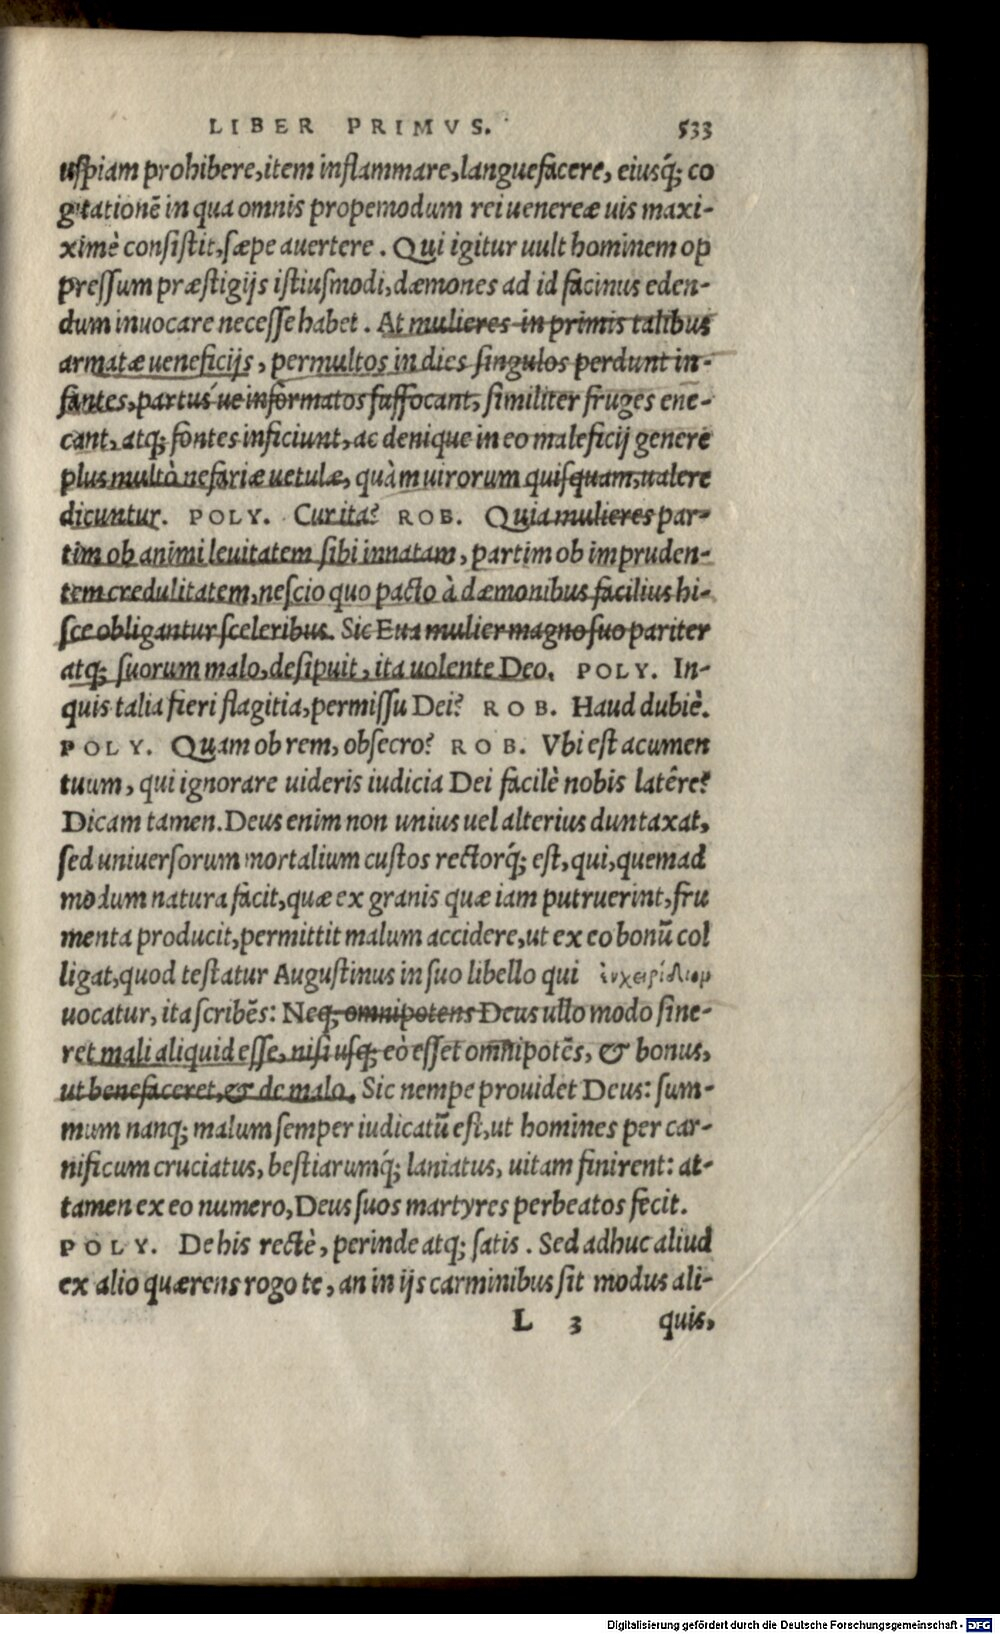 LIBER PRIMVS. 533
uspiam prohibere, item inflammare, languefacere, eiusq́; co
gitationē in qua omnis propemodum rei uenereæ uis maxi-
ximè consistit, sæpe auertere. Qui igitur uult hominem op
pressum præstigijs istiusmodi, dæmones ad id facinus eden-
dum inuocare necesse habet. At mulieres in primis talibus
armatæ ueneficijs, permultos in dies singulos perdunt in-
fantes, partus úe informatos suffocant, similiter fruges ene-
cant, atq; fontes inficiunt, ac denique in eo maleficij genere
plus multò nefariæ uetulæ, quàm uirorum quisquam, ualere
dicuntur. POLY. Cur ita? ROB. Quia mulieres par-
tim ob animi leuitatem sibi innatam, partim ob impruden-
tem credulitatem, nescio quo pacto à dæmonibus facilius hi-
sce obligantur sceleribus. Sic Eua mulier magno suo pariter
atq; suorum malo, desipuit, ita uolente Deo. POLY. In-
quis talia fieri flagitia, permissu Dei? ROB. Haud dubiè.
POLY. Quam ob rem, obsecro? ROB. Vbi est acumen
tuum, qui ignorare uideris iudicia Dei facilè nobis latêre?
Dicam tamen. Deus enim non unius uel alterius duntaxat,
sed uniuersorum mortalium custos rectorq́; est, qui, quemad
modum natura facit, quæ ex granis quæ iam putruerint, fru
menta producit, permittit malum accidere, ut ex eo bonū col
ligat, quod testatur Augustinus in suo libello qui ἐνχειρίδιον
uocatur, ita scribēs: Neq; omnipotens Deus ullo modo sine-
ret mali aliquid esse, nisi usq; eò esset omnipotēs, & bonus,
ut benefaceret, & de malo. Sic nempe prouidet Deus: sum-
mum nanq; malum semper iudicatū est, ut homines per car-
nificum cruciatus, bestiarumq́; laniatus, uitam finirent: at-
tamen ex eo numero, Deus suos martyres perbeatos fecit.
POLY. De his rectè, perinde atq; satis. Sed adhuc aliud
ex alio quærens rogo te, an in ijs carminibus sit modus ali-
L 3 quis,
Digitalisierung gefördert durch die Deutsche Forschungsgemeinschaft - DFG